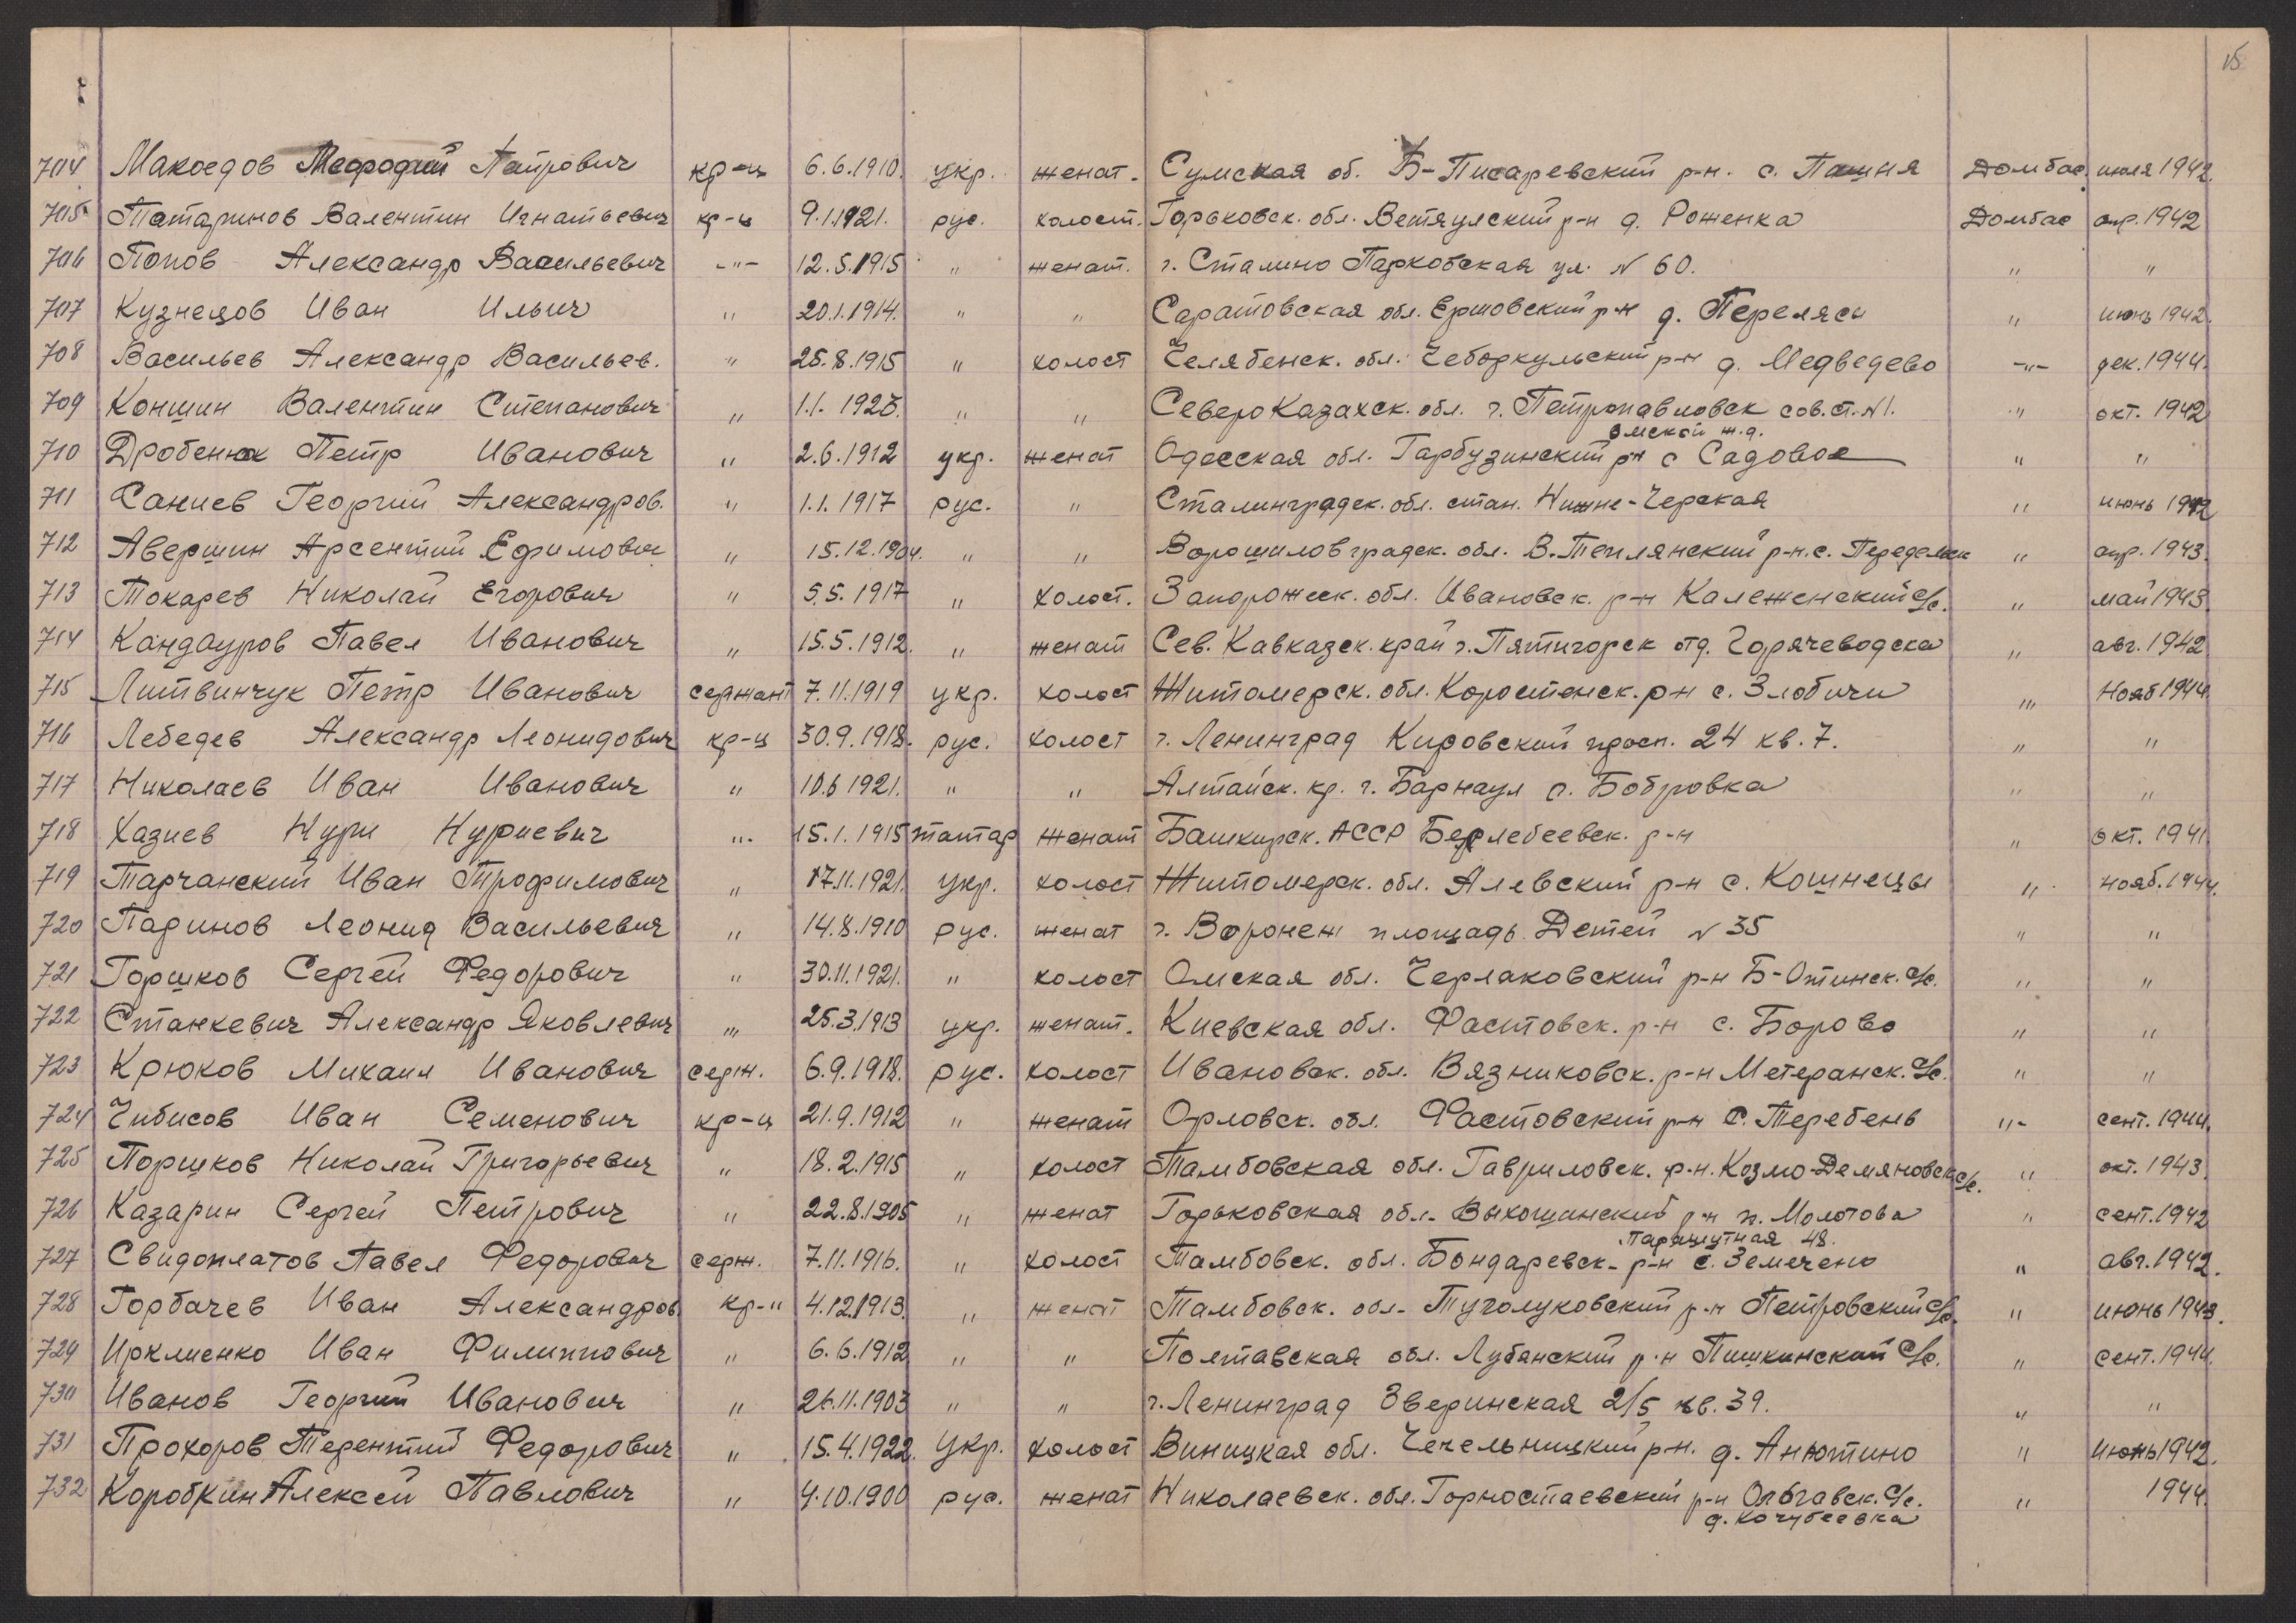 15
704 Макоедов Мефодий Патрович кр-ц 6.6.1910. укр. женат. Сумская об. Б-Писаревский р-н. с. Пашня Домбас. июля 1942.
705 Татаринов Валентин Игнатьевич кр-ц 9.1.1921. рус. холост. Горьковск. обл. Ветяулский р-н д. Роженка Домбас апр. 1942
706 Попов Александр Васильевич -"- 12.5.1915 " женат. г. Сталино Парковская ул. N 60. " "
707 Кузнецов Иван Ильич " 20.1.1914. " " Саратовская обл. Ершовский р-н д. Перелясы " июнь 1942.
708 Васильев Александр Васильев. " 25.8.1915 " холост Челябенск. обл. Чеборкульский р-н д. Медведево -"- дек. 1944.
709 Коншин Валентин Степанович " 1.1. 1923. " " Северо Казахск. обл. г. Петропавловск сов. ст. N1. " окт. 1942
Омской ж.д.
710 Дробенюк Петр Иванович " 2.6.1912 укр. женат Одесская обл. Гарбузинский р-н с Садовое " "
711 Саниев Георгий Александров. " 1.1.1917 рус. " Сталинградск. обл. стан. Нижне-Черская " июнь 1942
712 Авершин Арсентий Ефимович " 15.12.1904. " " Ворошиловградск. обл. В.-Теплянский р-н. с. Передельск " апр. 1943.
713 Токарев Николай Егорович " 5.5.1917 " холост. Запорожск. обл. Ивановск. р-н Калеженский с/с. " май 1943.
714 Кандауров Павел Иванович " 15.5.1912. " женат Сев. Кавказск. край г. Пятигорск отд. Горячеводска " авг. 1942
715 Литвинчук Петр Иванович сержант 7.11.1919 укр. холост Житомерск. обл. Коростенск. р-н с. Злобичи " Нояб 1944.
716 Лебедев Александр Леонидович кр-ц 30.9.1918. рус. холост г. Ленинград Кировский просп. 24 кв. 7. " "
717 Николаев Иван Иванович " 10.6 1921. " " Алтайск. кр. г. Барнаул с. Бобровка " "
718 Хазиев Нури Нуриевич " 15.1.1915 татар женат Башкирск. АССР Берлебеевск. р-н " окт. 1941.
719 Тарчанский Иван Трофимович " 17.11.1921. укр. холост Житомерск. обл. Алевский р-н с. Кошнецы " нояб. 1944.
720 Паринов Леонид Васильевич " 14.8.1910 рус. женат г. Воронеж площадь Детей N 35 " "
721 Горшков Сергей Федорович " 30.11.1921. " холост Омская обл. Черлаковский р-н Б-Отинск. с/с. " "
722 Станкевич Александр Яковлевич " 25.3.1913 укр. женат. Киевская обл. Фастовск. р-н с. Борово " "
723 Крюков Михаил Иванович серж. 6.9.1918. рус. холост Ивановск. обл. Вязниковск. р-н Метеранск. с/с. " "
724 Чибисов Иван Семенович кр-ц 21.9.1912 " женат Орловск. обл. Фастовский р-н с. Теребень "- сент. 1944.
725 Поршков Николай Григорьевич " 18.2.1915 " холост Тамбовская обл. Гавриловск. р-н. Козмо-Демяновск с/с. " окт. 1943.
726 Казарин Сергей Петрович " 22.8.1905 " женат Горьковская обл. Выкошанский р-н п. Молотова " сент. 1942
Парашутная 48.
727 Свидоплатов Павел Федорович серж. 7.11.1916. " холост Тамбовск. обл. Бондаревск. р-н с. Земечено " авг. 1942.
728 Горбачев Иван Александров. кр-ц 4.12.1913. " женат Тамбовск. обл. Туголуковский р-н Петровский с/с. " июнь 1943.
729 Ирклиенко Иван Филиппович " 6.6.1912 " " Полтавская обл. Лубянский р-н Пишкинский с/с. " сент. 1944.
730 Иванов Георгий Иванович " 26.11.1903 " " г. Ленинград Зверинская 2/5 кв. 39. " "
731 Прохоров Терентий Федорович " 15.4.1922. Укр. холост Виницкая обл. Чечельницкий р-н. д. Анютино " Июнь 1942.
732 Коробкин Алексей Павлович " 4.10.1900 рус. женат Николаевск. обл. Горностаевский р-н Ольгавск. с/с. " 1944.
д. Кочубеевка